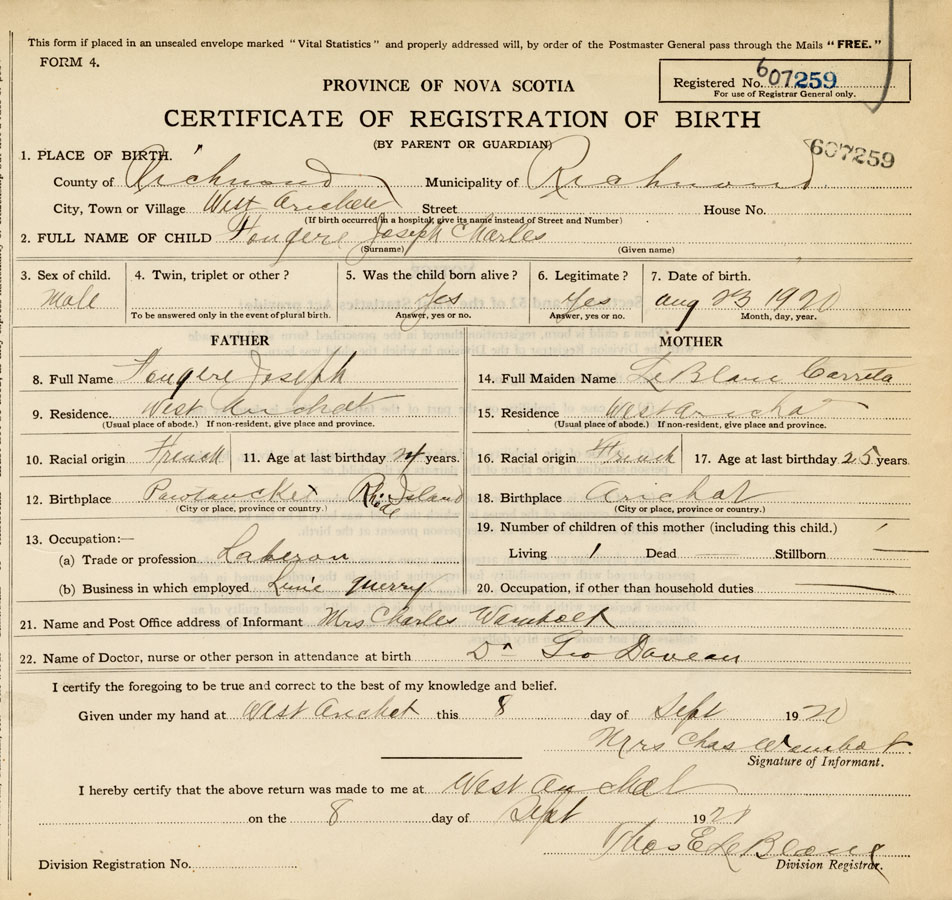 This form if placed in an unsealed envelope marked "Vital Statistics" and properly addressed will, by order of the Postmaster General pass through the Mails "FREE."
FORM 4.
Registered No. 607259
For use of Registrar General only.
PROVINCE OF NOVA SCOTIA
CERTIFICATE OF REGISTRATION OF BIRTH
(BY PARENT OR GUARDIAN)
607259
1. PLACE OF BIRTH.
County of Richmond Municipality of Richmond
City, Town or Village West Street House No.
(If birth occurred in a hospital, give its name instead of Street and Number)
2. FULL NAME OF CHILD Fougere Joseph Charles
(Surname) (Given name)
3. Sex of child. 4. Twin, triplet or other? 5. Was the child born alive? 6. Legitimate? 7. Date of birth.
Male Yes Yes Aug 23 1920
To be answered only in the event of plural birth. Answer, yes or no. Answer, yes or no. Month, day, year.
FATHER MOTHER
8. Full Name Fougere Joseph 14. Full Maiden Name LeBlanc
9. Residence. West Arichat 15. Residence West Arichat
(Usual place of abode.) If non-resident, give place and province. (Usual place of abode.) If non-resident, give place and province.
10. Racial origin French 11. Age at last birthday 24 years. 16. Racial origin French 17. Age at last birthday 25 years.
12. Birthplace Pawtucket Rhode Island 18. Birthplace Arichat
(City or place, province or country.) (City or place, province or country.)
13. Occupation:— 19. Number of children of this mother (including this child.)
(a) Trade or profession Living 1 Dead Stillborn
(b) Business in which employed 20. Occupation, if other than household duties
21. Name and Post Office address of Informant Mrs Charles
22. Name of Doctor, nurse or other person in attendance at birth Dr Geo
I certify the foregoing to be true and correct to the best of my knowledge and belief.
Given under my hand at West Arichat this 8 day of Sept 1920
Mrs Chas
Signature of Informant.
I hereby certify that the above return was made to me at West Arichat
on the 8 day of Sept 19
Thos E LeBlanc
Division Registration No. Division Registrar.